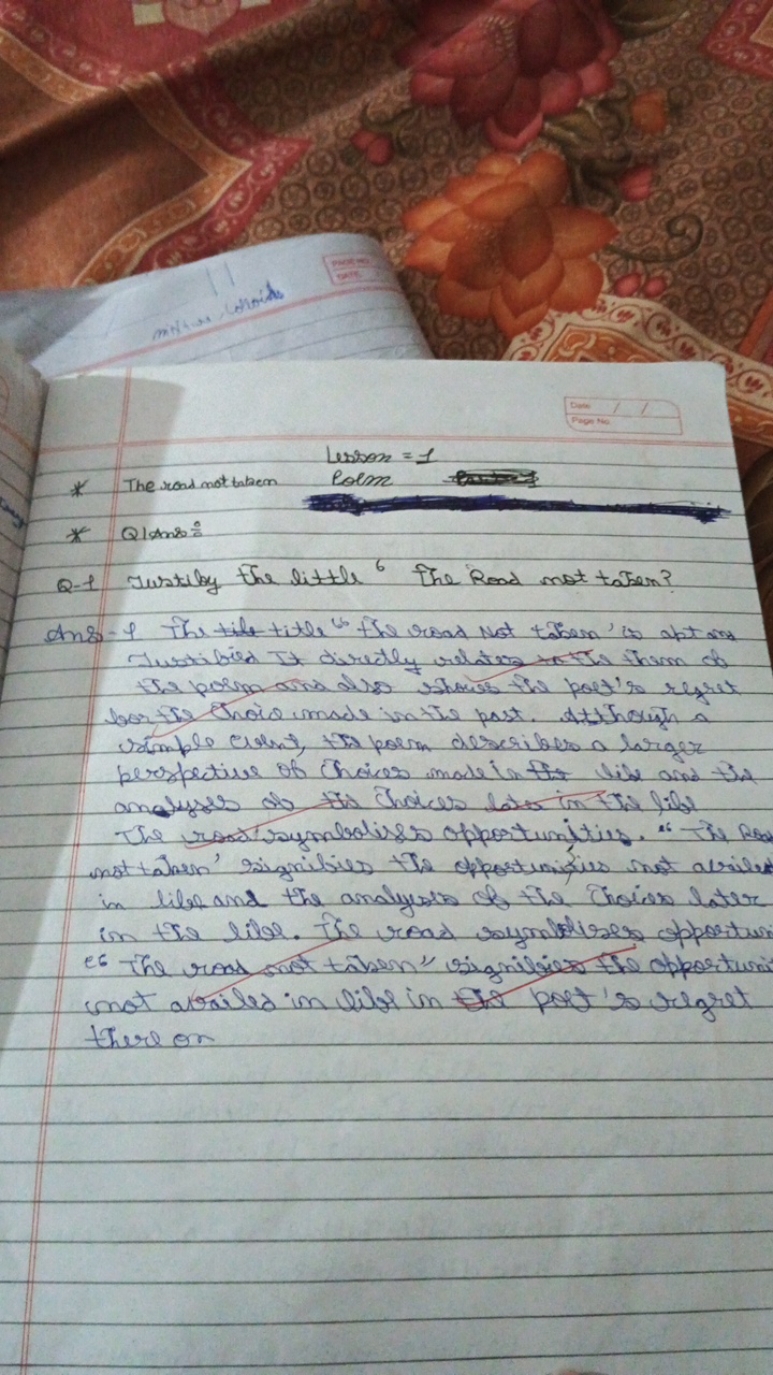 PAGE NO.
DATE:
Colloids
Date / /
Page No.
Lesson = 1
* The road not taken Poem
* Q/Ans :
Q-1 Justify the little ' The Road not taken?
Ans-1 The title " the road Not taken' is apt and
Justified It directly relates to the them of
the poem and also shows the poet's regret
for the choic made in the past. Although a
simple event, the poem describes a larger
perspective of choices made in the life and the
analyses of the choices late in the life
The road symbolises opportunities. " The Road
not taken' signifies the opportunities not availed
in life and the analyses of the choices later
in the life. The road symbolises opportun
" The road not taken" signifies the opportuni
not availed in life in the poet's regret
there on